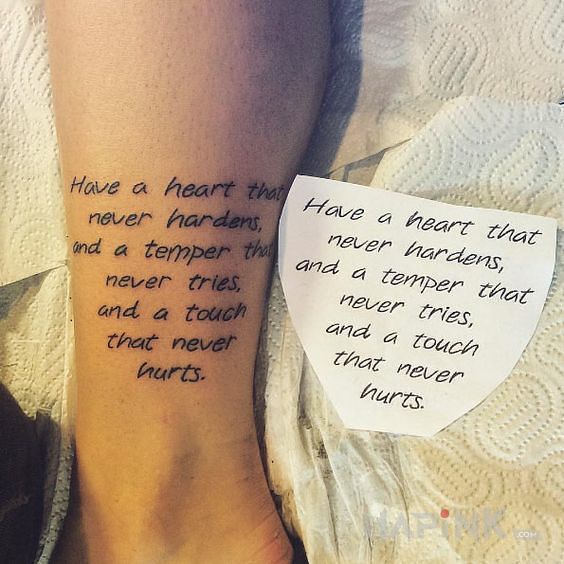 Have a heart that
never hardens,
and a temper that
never tries,
and a touch
that never
hurts.
Have a heart that
never hardens,
and a temper that
never tries,
and a touch
that never
hurts.
HAPiNK.COM